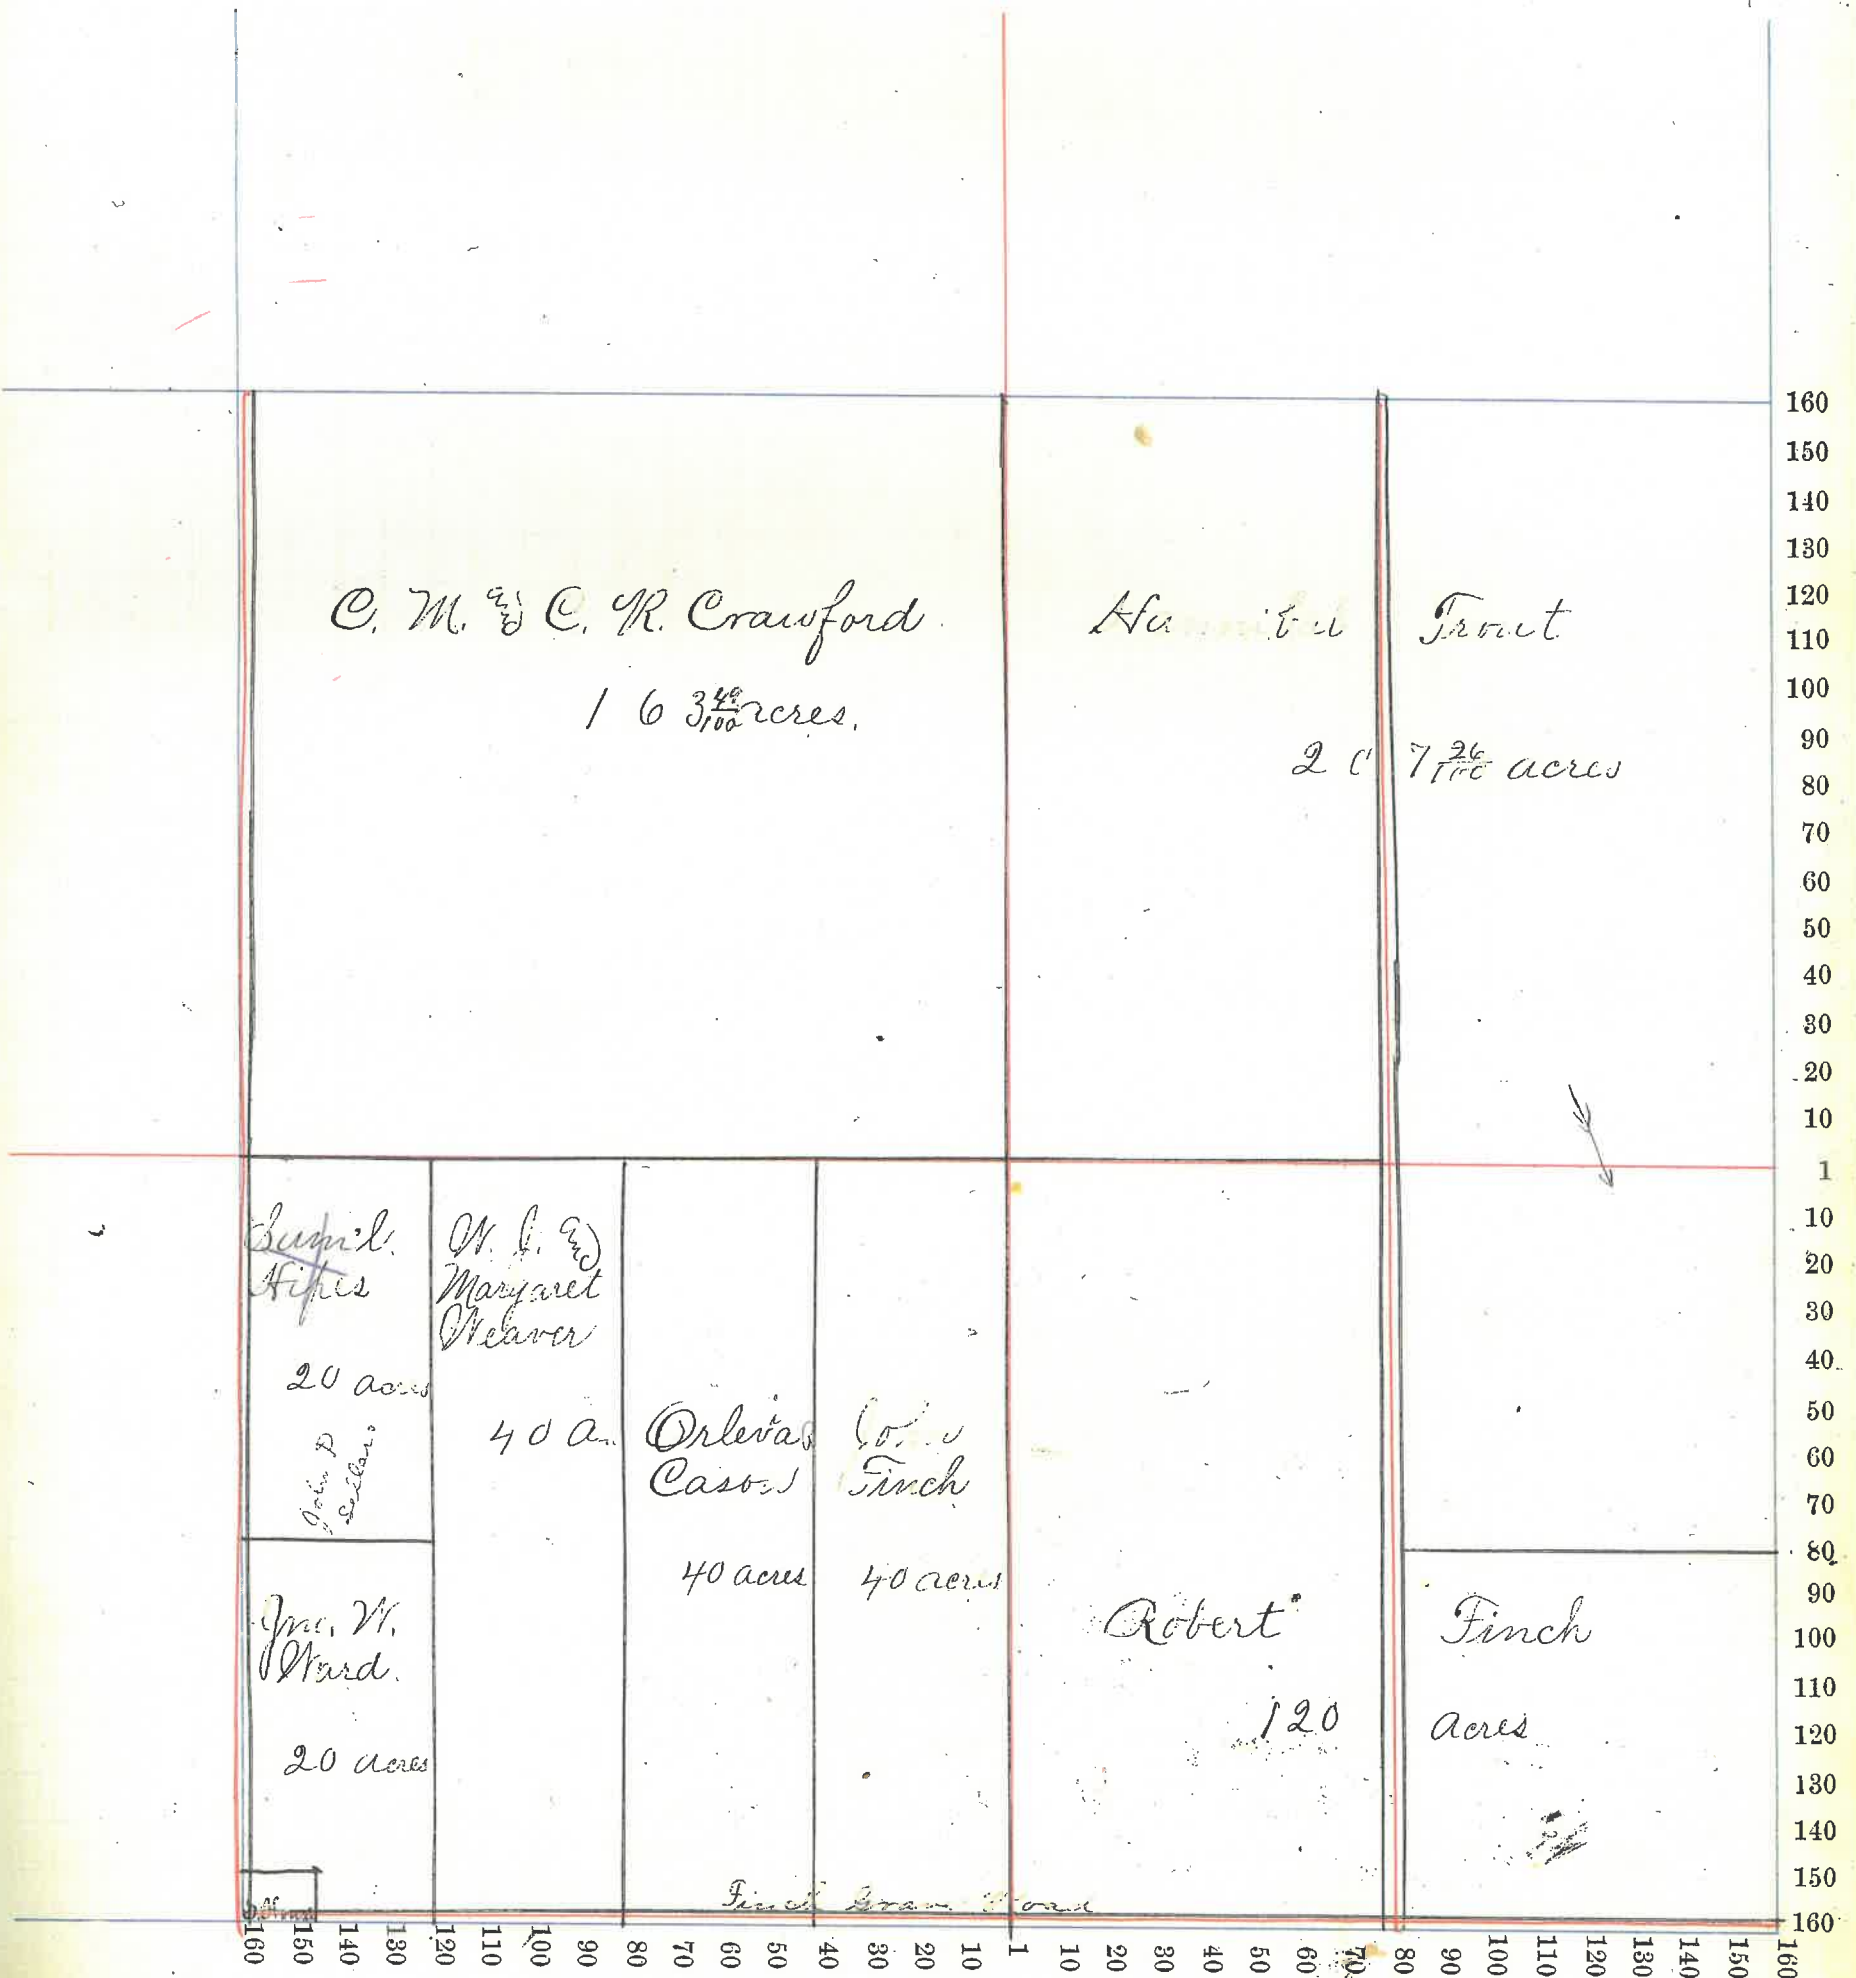 C. M. & C. R. Crawford
163 49/100 acres.
Trout
207 26/100 acres
Sam'l.
Hipes
20 acres
John P
Sellars
W. J. &
Margaret
Weaver
40 a.
Orleva
Cason
40 acres
John
Finch
40 acres
Robert Finch
120 acres
Jno. W.
Ward.
20 acres
Finch Road
160
150
140
130
120
110
100
90
80
70
60
50
40
30
20
10
1
10
20
30
40
50
60
70
80
90
100
110
120
130
140
150
160
160 150 140 130 120 110 100 90 80 70 60 50 40 30 20 10 1 10 20 30 40 50 60 70 80 90 100 110 120 130 140 150 160